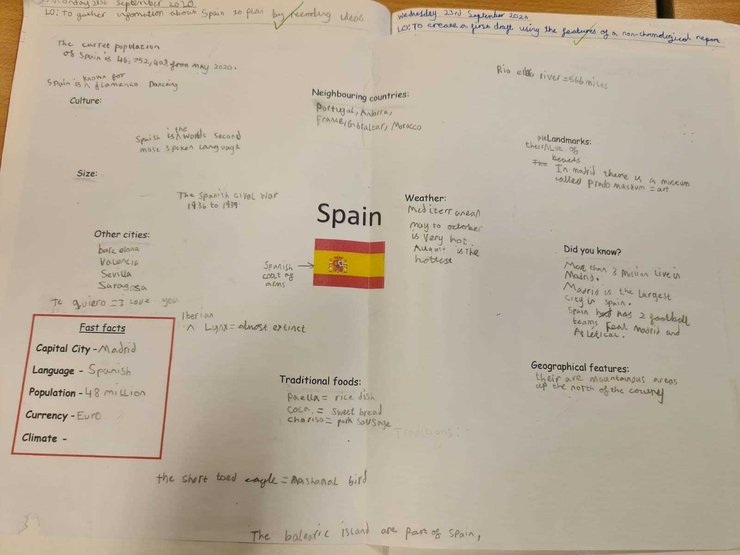 Monday 21st September 2020
LO: To gather information about Spain to plan by recording ideas
Wednesday 23rd September 2020
LO: To create a first draft using the features of a non-chronological report
The curret population
of Spain is 46,752,408 from may 2020.
Spain is ^ known for flamenco Dancing
Culture:
Spaish is ^ the words second
most spoken language
Size:
The Spanish civel war
1936 to 1939
Other cities:
barcelona
Valencia
Sevilla
Saragosa
Te quiero = I love you
Fast facts
Capital City - Madrid
Language - Spanish
Population - 48 million
Currency - Euro
Climate -
Neighbouring countries:
Portugal, Andorra,
France, Gibraltar, Morocco
Spain
Spanish
coat of
arms
Iberian
^ Lynx = almost extinct
Traditional foods:
Paella = rice dish
Coca = sweet bread
Chariso = pork sausage
Traditions:
the short toed eagle = nashanal bird
The balearic island are part of Spain,
Rio river = 566 miles
Landmarks:
their Lots of
beauts
In madrid there is a museum
called prado museum = art
Weather:
Mediterranean
may to october
is very hot.
August is the
hottest
Did you know?
More than 3 million live in
Madrid.
Madrid is the largest
city in spain.
Spain has 2 football
teams Real madrid and
Atletical.
Geographical features:
their are mountainous areas
up the north of the country